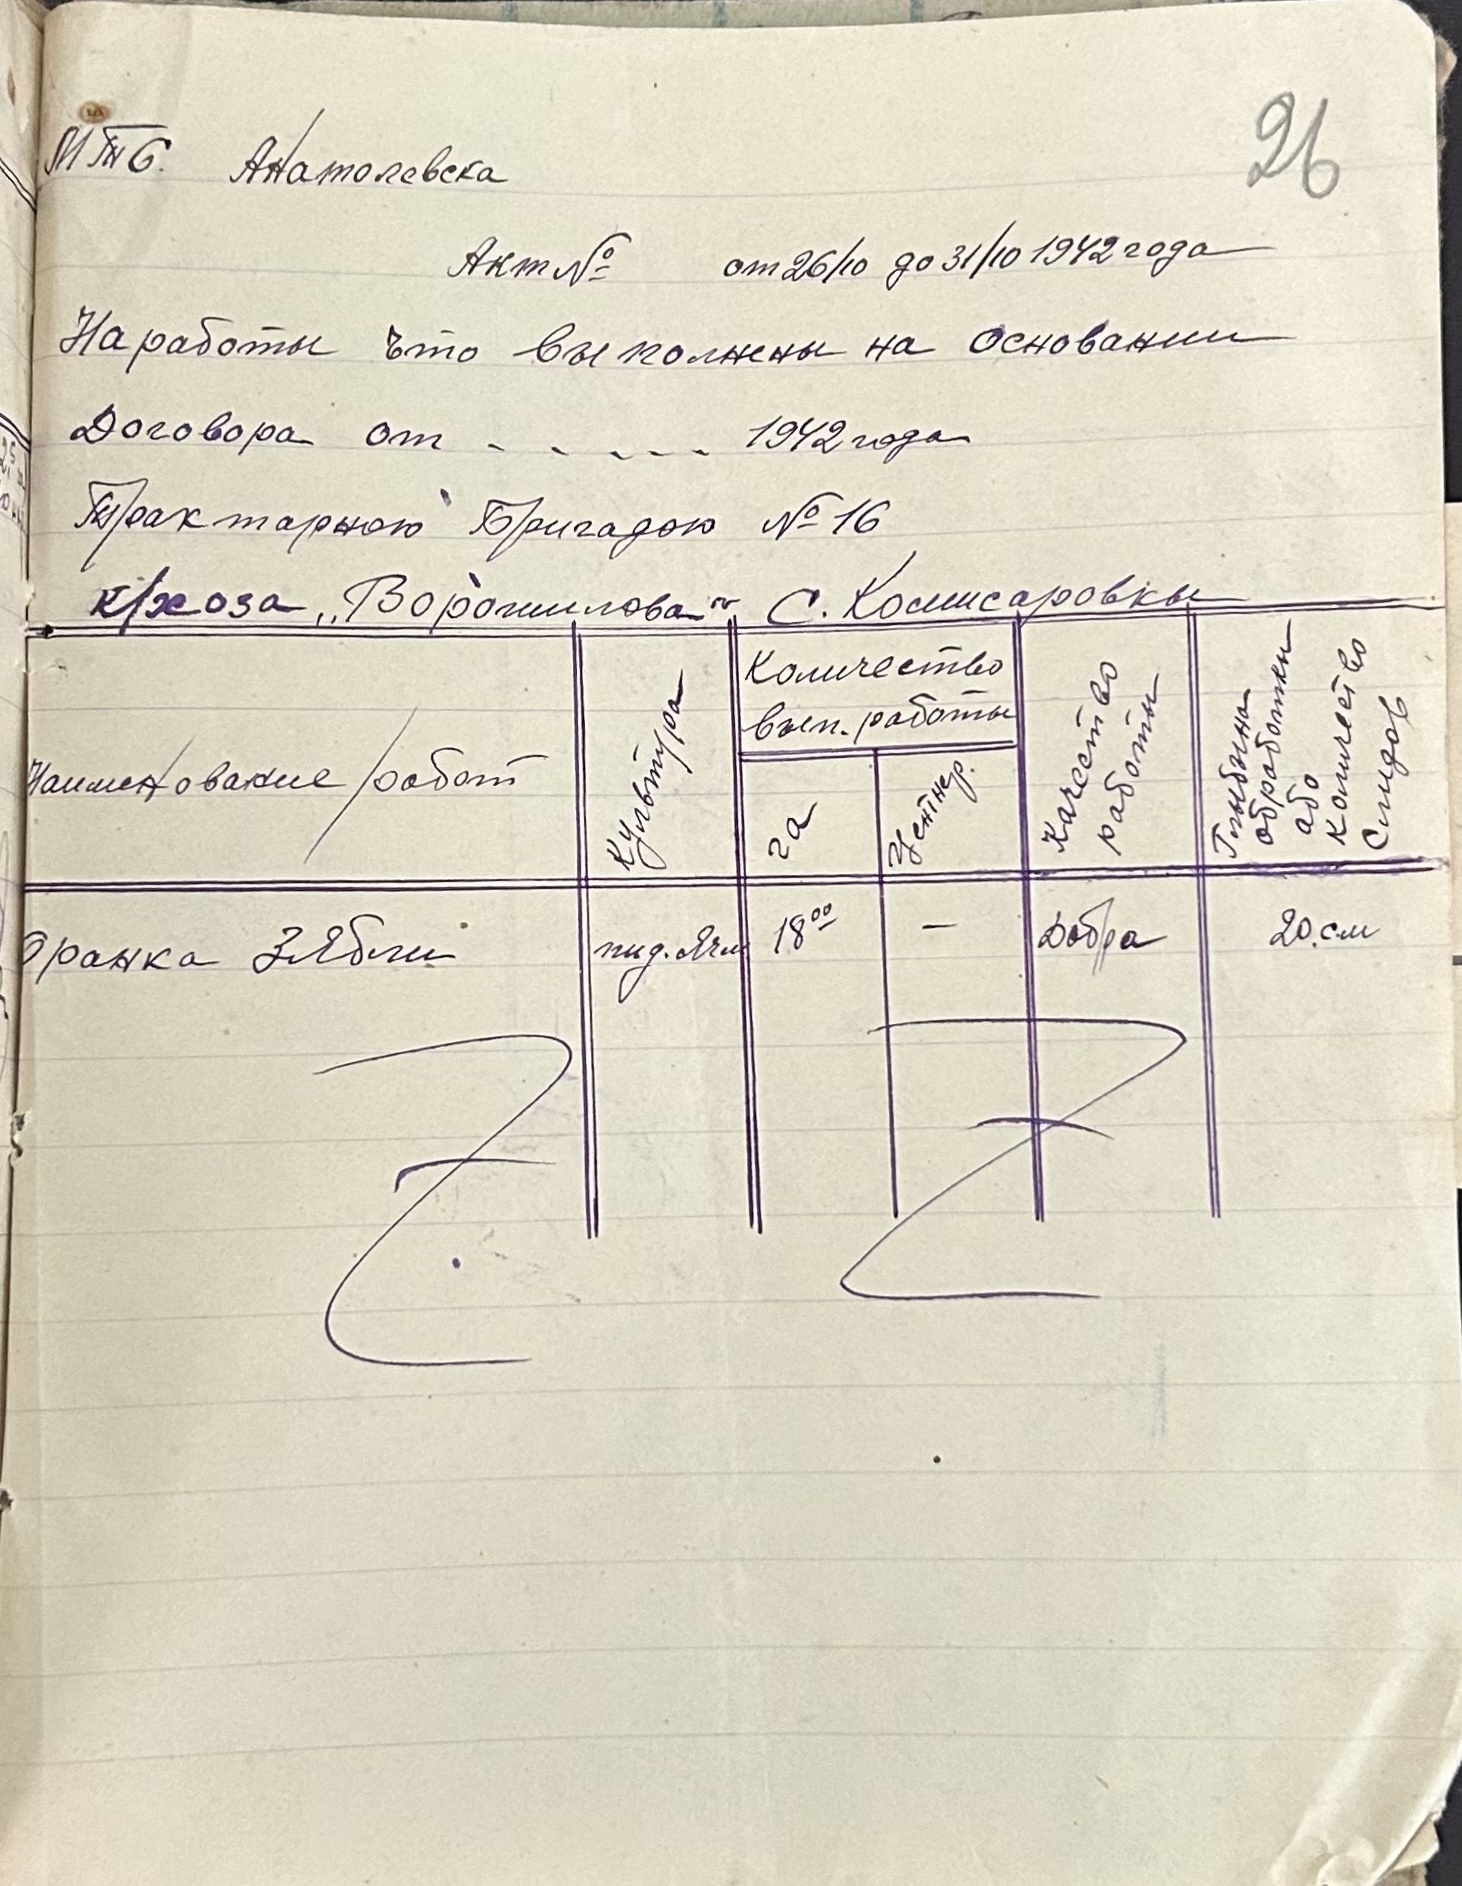 26
МТС. Анатолевска
Акт № от 26/10 до 31/10 1942 года
На работы что выполнены на основании
Договора от - - - - - - 1942 года
Трактарною Бригадою № 16
к/хоза „Ворошилова" С. Комисаровкы
Наименование работ
Культура
Количество
вып. работы
га
Центнер.
Качество
работы
Глыбина
обработки
або
Количество
Слидов
Оранка Зябли
пид. Ячм
18⁰⁰
—
Добра
20.см